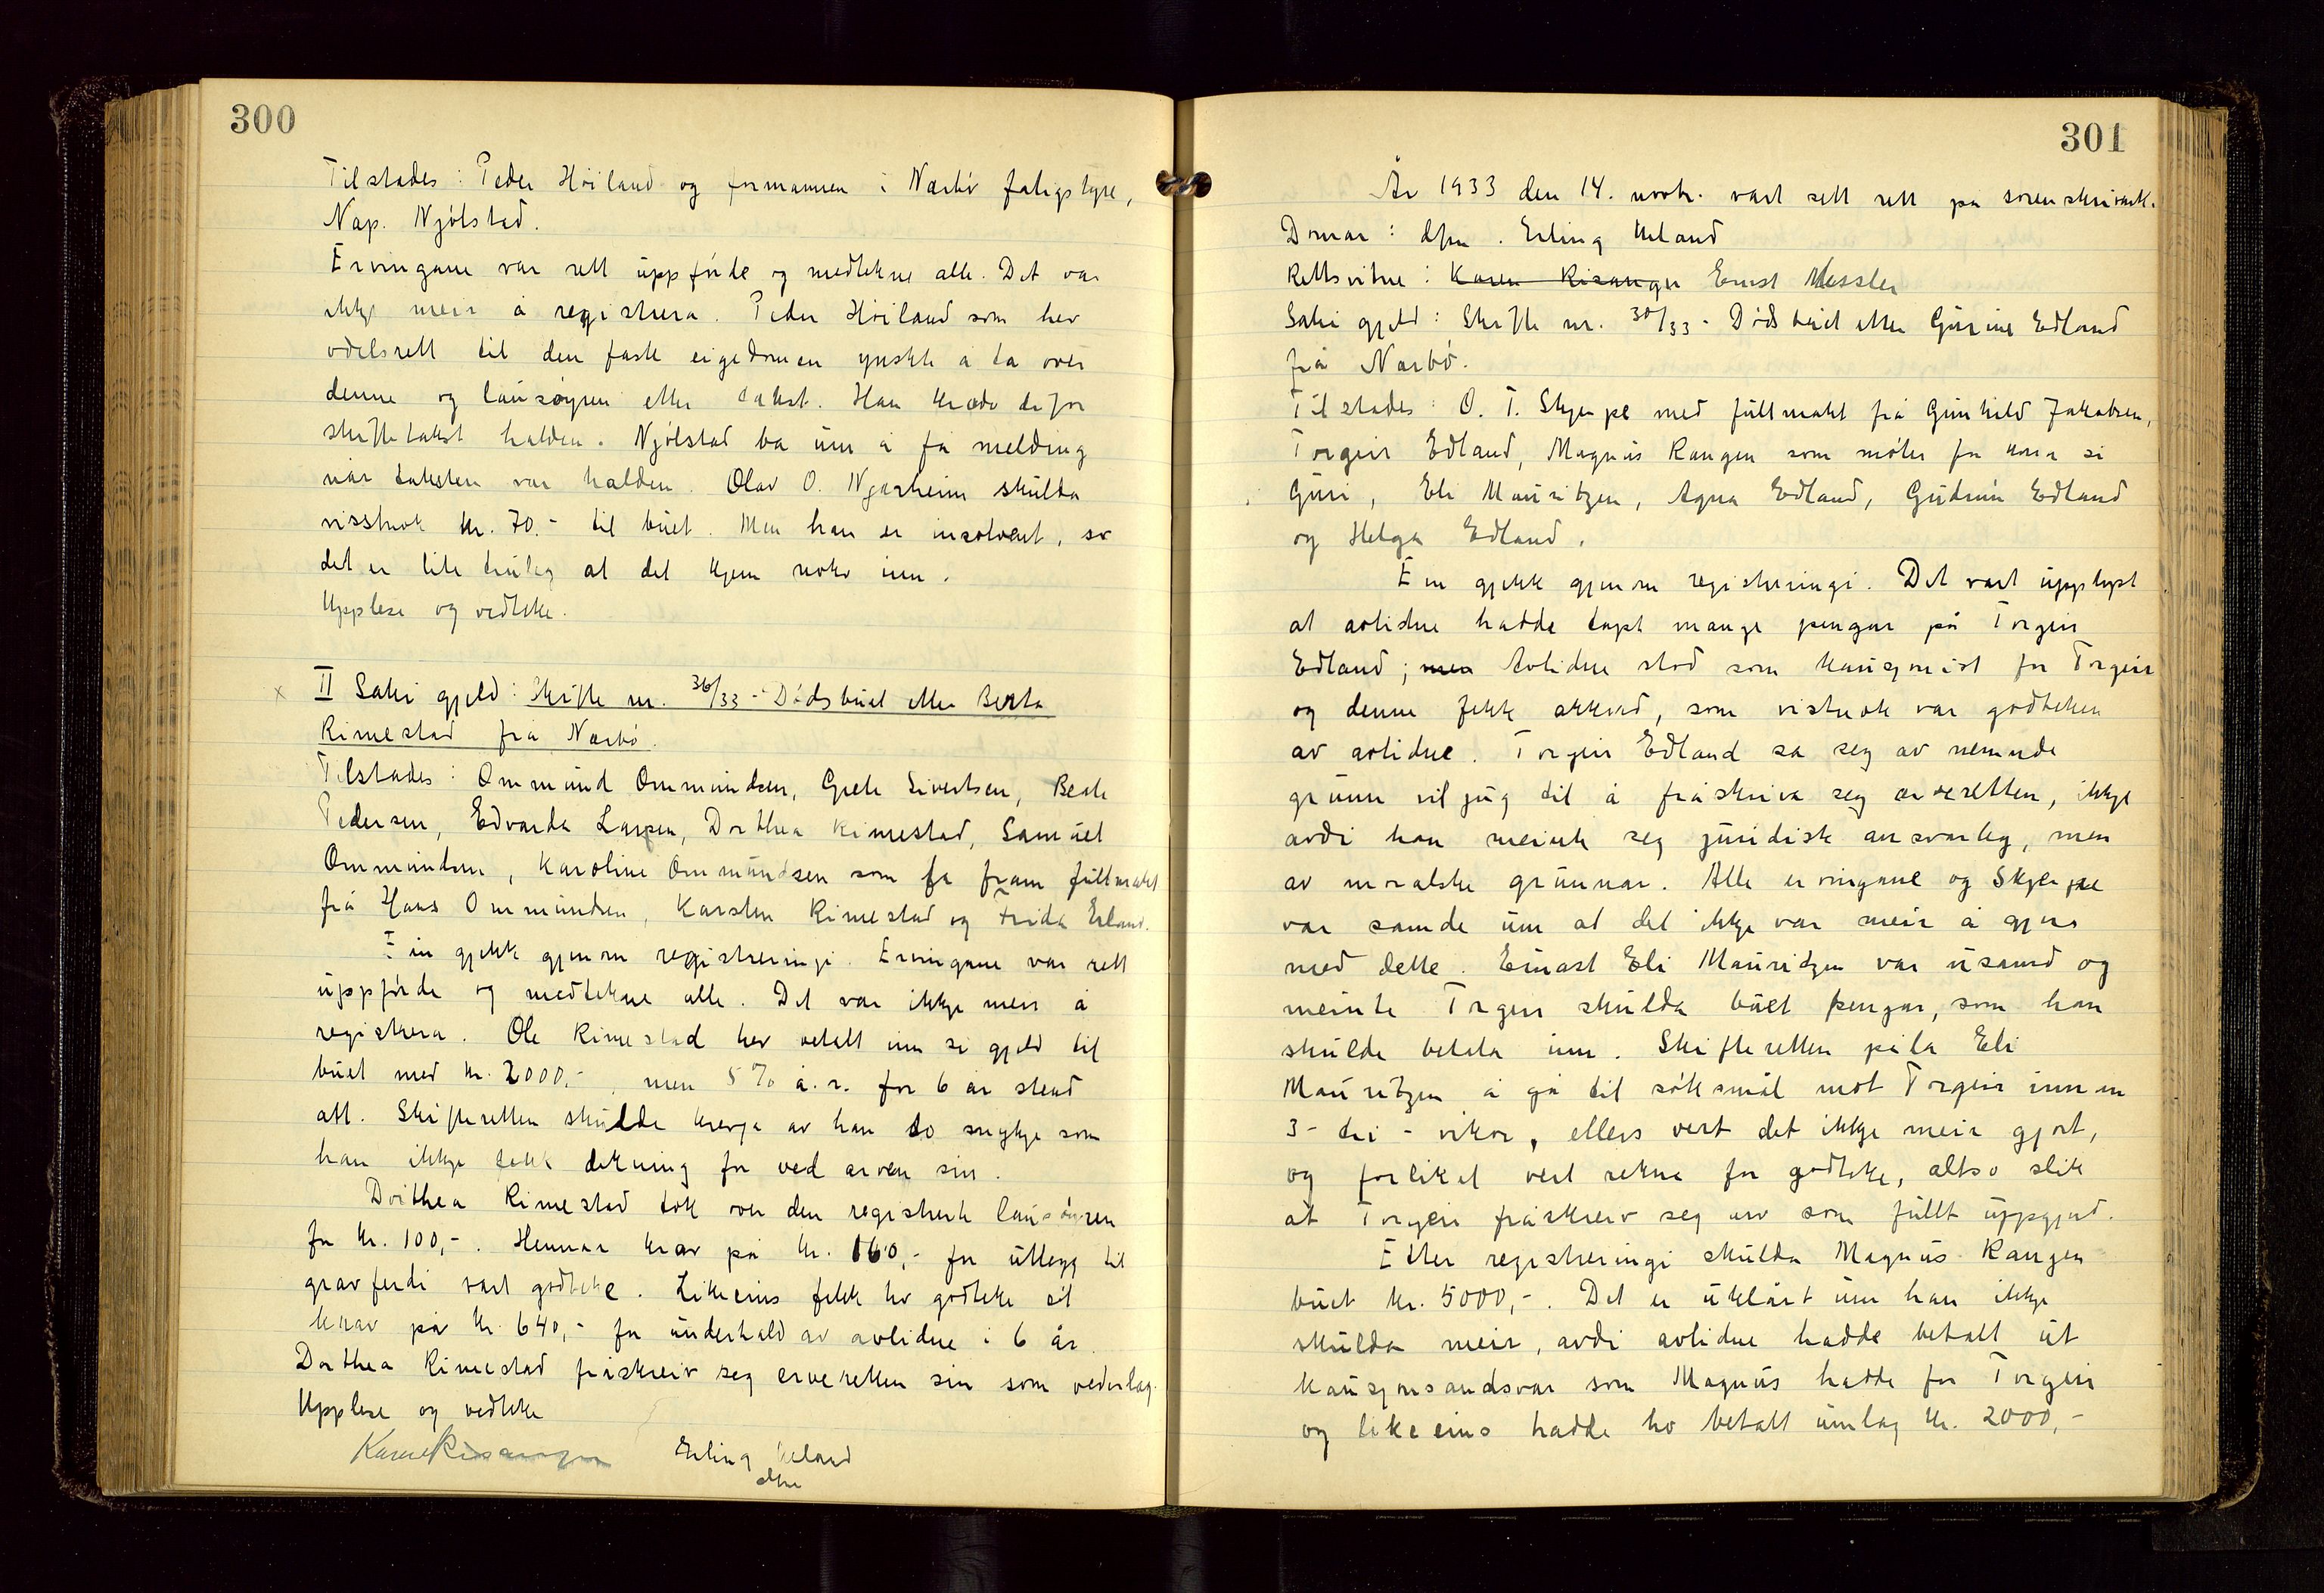 300
Tilstades: Peder Höiland og formannen i Nærbö fatigstyre,
Nap. Njölstad.
Ervingane var rett uppförde og medtekne alle. Det var
ikkje meir å registrera. Peder Höiland som hev
odelsrett til den faste eigedomen ynskte å ta over
denne og lausöyren etter takst. Han kravde difor
skiftetakst halden. Njölstad ba um å få melding
når taksten var halden. Olav O. Njærheim skulda
visstnok kr. 70.- til buet. Men han er insolvent, so
det er lite truleg at det kjem noko inn.
Upplese og vedteke.
II Saki gjeld: Skifte nr. 36/33 - Dödsbuet etter Berta
Rimestad frå Nærbö.
Tilstades: Ommund Ommundsen, Grete Sivertsen, Berte
Pedersen, Edvarda Larsen, Dorthea Rimestad, Samuel
Ommundsen, Karoline Ommundsen som la fram fullmakt
frå Hans Ommundsen, Karsten Rimestad og Frida Erland.
Ein gjekk gjenom registreringi. Ervingane var rett
uppförde og medtekne alle. Det var ikkje meir å
registrera. Ole Rimestad hev betalt inn si gjeld til
buet med kr. 2000,- men 5% å.r. for 6 år stend
att. Skifteretten skulde krevja av han so mykje som
han ikkje fekk dekning for ved arven sin.
Dorthea Rimestad tok over den registrerte lausöyren
for kr. 100,-. Hennar krav på kr. 160,- for utlegg til
gravferdi vart godteke. Likeeins fekk ho godteke sit
krav på kr. 640,- for underhald av avlidne i 6 år.
Dorthea Rimestad fråskreiv seg erveretten sin som vederlag.
Upplese og vedteke
Karen Risanger Erling Ueland
dfm
301
År 1933 den 14. novbr. vart sett rett på sorenskrivark.
Domar: dfm. Erling Ueland
Rettsvitne: Karen Risanger Ernst Kessler
Saki gjeld: Skifte nr. 30/33 - Dödsbuet etter Gurine Edland
frå Nærbö.
Tilstades: O. T. Skjerpe med fullmakt frå Gunhild Jakobsen,
Torgeir Edland, Magnus Rangen som möter for kona si
Guri, Eli Mauritzen, Agna Edland, Gudrun Edland
og Helga Edland.
Ein gjekk gjenom registreringi. Det vart upplyst
at avlidne hadde tapt mange pengar på Torgeir
Edland; men Avlidne stod som kausjonist for Torgeir
og denne fekk akkord, som vistnok var godteken
av avlidne. Torgeir Edland sa seg av nemnde
grunn viljug til å fråskriva seg arveretten, ikkje
avdi han meinte seg juridisk ansvarleg, men
av moralske grunnar. Alle ervingane og Skjerpe
var samde um at det ikkje var meir å gjera
med dette. Einast Eli Mauritzen var usamd og
meinte Torgeir skulda buet pengar, som han
skulde betala inn. Skifteretten påla Eli
Mauritzen å gå til söksmål mot Torgeir innan
3 - tri - vikor, ellers vert det ikkje meir gjort,
og forliket vert rekna for godteke, altso slik
at Torgeir fråskreiv seg arv som fullt uppgjerd.
Etter registreringi skulda Magnus Rangen
buet kr. 5000,-. Det er uklårt um han ikkje
skulda meir, avdi avlidne hadde betalt ut
kausjonsandsvar som Magnus hadde for Torgeir
og likeeins hadde ho betalt umlag kr. 2000,-